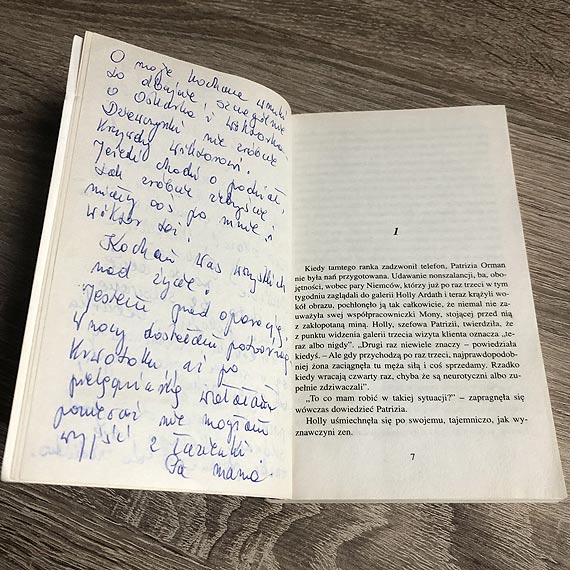 O moje kochane wnuki
to dbajcie i szczególnie
o Oskarka i Wiktorka
Dziewczynki nie zróbcie
krzywdy Wiktorowi.
Jeżeli chodi o podział,
tak zróbcie żebyście
miały coś po mnie i
Wiktor też!
Kocham Was wszystkich
nad życie!
Jestem przed operacją
W nocy dostałam potwornego
krwotoku, aż po
pielęgniarkę wołałam
pomagać nie mogłam
wyjść z łazienki.
Pa mama
1
Kiedy tamtego ranka zadzwonił telefon, Patrizia Orman
nie była nań przygotowana. Udawanie nonszalancji, ba, obo-
jętności, wobec pary Niemców, którzy już po raz trzeci w tym
tygodniu zaglądali do galerii Holly Ardath i teraz krążyli wo-
kół obrazu, pochłonęło ją tak całkowicie, że niemal nie za-
uważyła swej współpracowniczki Mony, stojącej przed nią
z zakłopotaną miną. Holly, szefowa Patrizii, twierdziła, że
z punktu widzenia galerii trzecia wizyta klienta oznacza „te-
raz albo nigdy”. „Drugi raz niewiele znaczy – powiedziała
kiedyś. – Ale gdy przychodzą po raz trzeci, najprawdopodob-
niej żona zaciągnęła tu męża siłą i coś sprzedamy. Rzadko
kiedy wracają czwarty raz, chyba że są neurotyczni albo zu-
pełnie zdziwaczali”.
„To co mam robić w takiej sytuacji?” – zapragnęła się
wówczas dowiedzieć Patrizia.
Holly uśmiechnęła się po swojemu, tajemniczo, jak wy-
znawczyni zen.
7